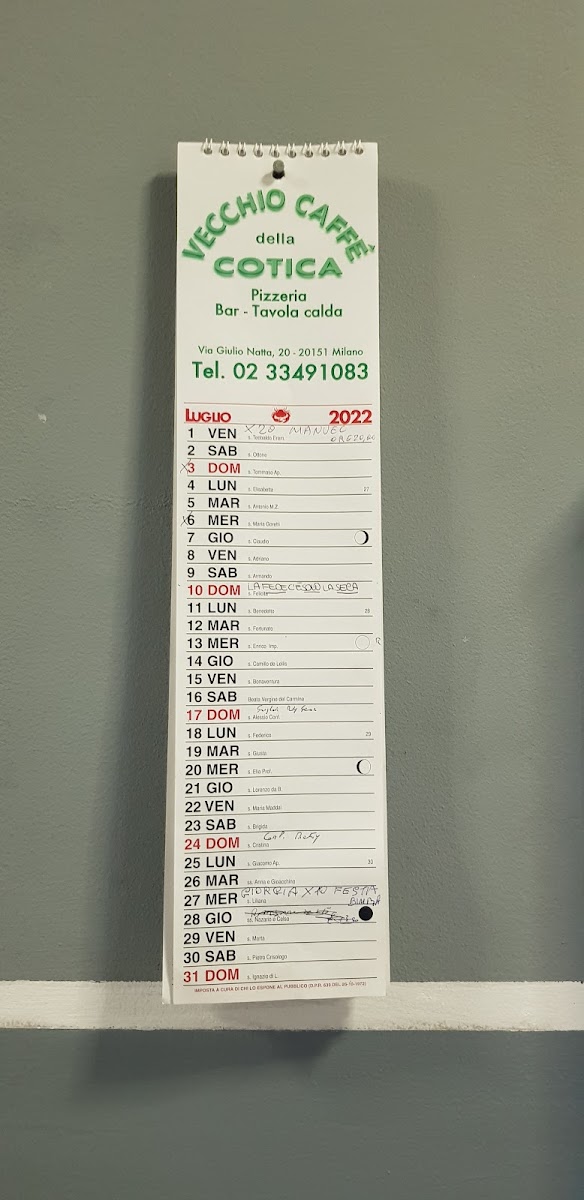 VECCHIO CAFFÈ
della
COTICA
Pizzeria
Bar - Tavola calda
Via Giulio Natta, 20 - 20151 Milano
Tel. 02 33491083
LUGLIO 2022
1 VEN s. Teobaldo Erem. X 20 MANUEL
2 SAB s. Ottone
X 3 DOM s. Tommaso Ap.
4 LUN s. Elisabetta 27
5 MAR s. Antonio M.Z.
X 6 MER s. Maria Goretti
7 GIO s. Claudio
8 VEN s. Adriano
9 SAB s. Armando
10 DOM s. Felicita LA FEDE C'È SOLO LA SERA
11 LUN s. Benedetto 28
12 MAR s. Fortunato
13 MER s. Enrico Imp.
14 GIO s. Camillo de Lellis
15 VEN s. Bonaventura
16 SAB Beata Vergine del Carmine
17 DOM s. Alessio Conf.
18 LUN s. Federico 29
19 MAR s. Giusta
20 MER s. Elia Prof.
21 GIO s. Lorenzo da B.
22 VEN s. Maria Madda.
23 SAB s. Brigida
24 DOM s. Cristina
25 LUN s. Giacomo Ap. 30
26 MAR ss. Anna e Gioacchino
27 MER s. Liliana GIORGIA X10 FESTA
BIMBA
28 GIO ss. Nazario e Celso
29 VEN s. Marta
30 SAB s. Pietro Crisologo
31 DOM s. Ignazio di L.
IMPOSTA A CURA DI CHI LO ESPONE AL PUBBLICO (D.P.R. 639 DEL 26-10-1972)